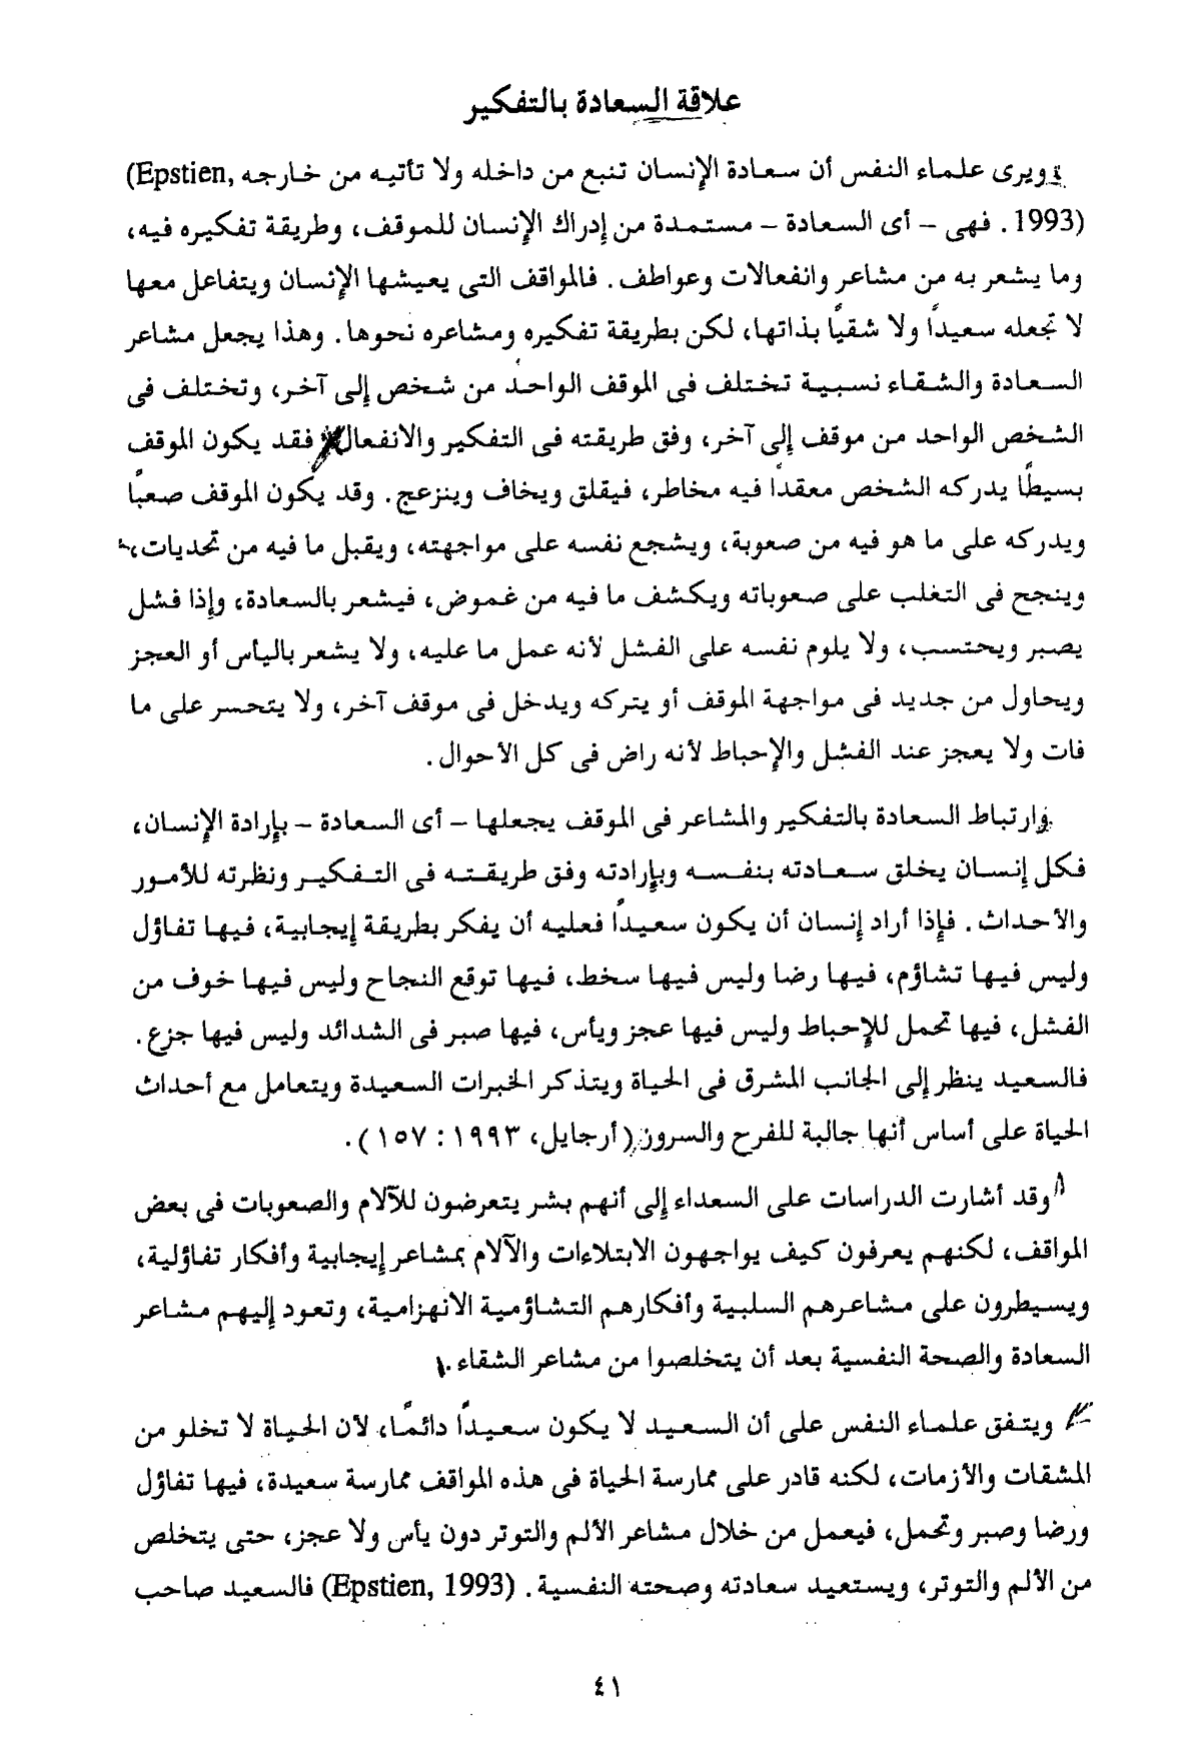 علاقة السعادة بالتفكير
ويرى علماء النفس أن سعادة الإنسان تنبع من داخله ولا تأتيه من خارجه (Epstien,
1993). فهى – أى السعادة – مستمدة من إدراك الإنسان للموقف، وطريقة تفكيره فيه،
وما يشعر به من مشاعر وانفعالات وعواطف. فالمواقف التى يعيشها الإنسان ويتفاعل معها
لا تجعله سعيداً ولا شقياً بذاتها، لكن بطريقة تفكيره ومشاعره نحوها. وهذا يجعل مشاعر
السعادة والشقاء نسبية تختلف فى الموقف الواحد من شخص إلى آخر، وتختلف فى
الشخص الواحد من موقف إلى آخر، وفق طريقته فى التفكير والانفعال فقد يكون الموقف
بسيطًا يدركه الشخص معقداً فيه مخاطر، فيقلق ويخاف وينزعج. وقد يكون الموقف صعبًا
ويدركه على ما هو فيه من صعوبة، ويشجع نفسه على مواجهته، ويقبل ما فيه من تحديات،
وينجح فى التغلب على صعوباته ويكشف ما فيه من غموض، فيشعر بالسعادة، وإذا فشل
يصبر ويحتسب، ولا يلوم نفسه على الفشل لأنه عمل ما عليه، ولا يشعر باليأس أو العجز
ويحاول من جديد فى مواجهة الموقف أو يتركه ويدخل فى موقف آخر، ولا يتحسر على ما
فات ولا يعجز عند الفشل والإحباط لأنه راض فى كل الأحوال.
وارتباط السعادة بالتفكير والمشاعر فى الموقف يجعلها – أى السعادة – بإرادة الإنسان،
فكل إنسان يخلق سعادته بنفسه وبإرادته وفق طريقته فى التفكير ونظرته للأمور
والأحداث. فإذا أراد إنسان أن يكون سعيداً فعليه أن يفكر بطريقة إيجابية، فيها تفاؤل
وليس فيها تشاؤم، فيها رضا وليس فيها سخط، فيها توقع النجاح وليس فيها خوف من
الفشل، فيها تحمل للإحباط وليس فيها عجز ويأس، فيها صبر فى الشدائد وليس فيها جزع.
فالسعيد ينظر إلى الجانب المشرق فى الحياة ويتذكر الخبرات السعيدة ويتعامل مع أحداث
الحياة على أساس أنها جالبة للفرح والسرور (أرجايل، ١٩٩٣: ١٥٧).
وقد أشارت الدراسات على السعداء إلى أنهم بشر يتعرضون للآلام والصعوبات فى بعض
المواقف، لكنهم يعرفون كيف يواجهون الابتلاءات والآلام بمشاعر إيجابية وأفكار تفاؤلية،
ويسيطرون على مشاعرهم السلبية وأفكارهم التشاؤمية الانهزامية، وتعود إليهم مشاعر
السعادة والصحة النفسية بعد أن يتخلصوا من مشاعر الشقاء.
ويتفق علماء النفس على أن السعيد لا يكون سعيداً دائمًا، لأن الحياة لا تخلو من
المشقات والأزمات، لكنه قادر على ممارسة الحياة فى هذه المواقف ممارسة سعيدة، فيها تفاؤل
ورضا وصبر وتحمل، فيعمل من خلال مشاعر الألم والتوتر دون يأس ولا عجز، حتى يتخلص
من الألم والتوتر، ويستعيد سعادته وصحته النفسية. (Epstien, 1993) فالسعيد صاحب
٤١